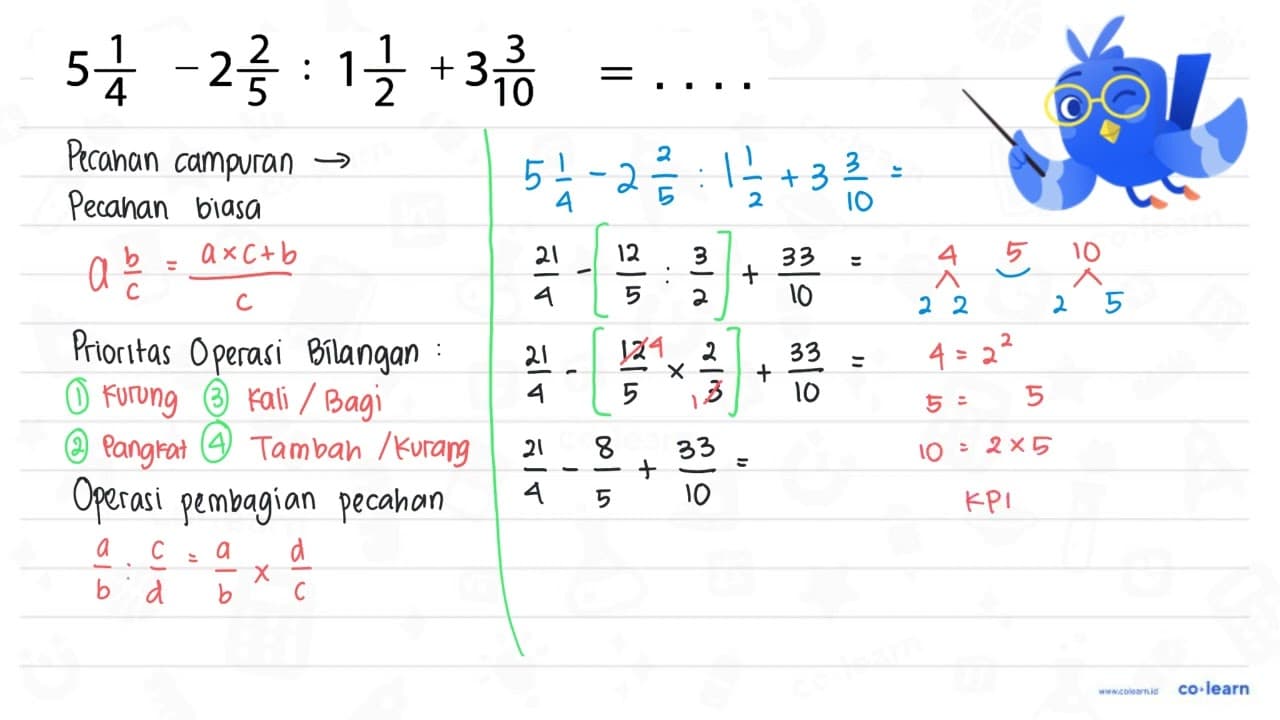 5 1/4 - 2 2/5 : 1 1/2 + 3 3/10 = . . . .
Pecahan campuran →
Pecahan biasa
a b/c = a×c+b/c
Prioritas Operasi Bilangan :
① Kurung ③ Kali / Bagi
② Pangkat ④ Tambah /Kurang
Operasi pembagian pecahan
a/b : c/d = a/b × d/c
5 1/4 - 2 2/5 : 1 1/2 + 3 3/10 =
21/4 - [12/5 : 3/2] + 33/10 =
21/4 - [12 4/5 × 2/1 3] + 33/10 =
21/4 - 8/5 + 33/10 =
4 5 10
2 2 2 5
4 = 2²
5 = 5
10 = 2×5
KPI
www.colearn.id co·learn